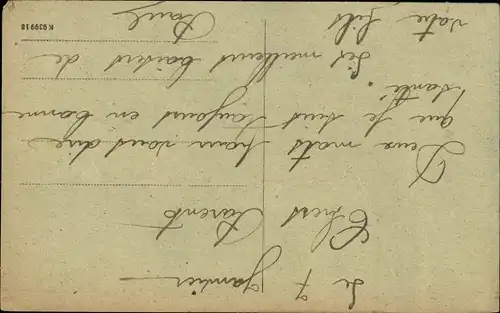 Le 7 Janvier
Chers Parents
Deux mots pour vous dire
que je suis toujours en bonne
santé.
Les meilleurs baisers de
votre fils
Paul
K 93991 8